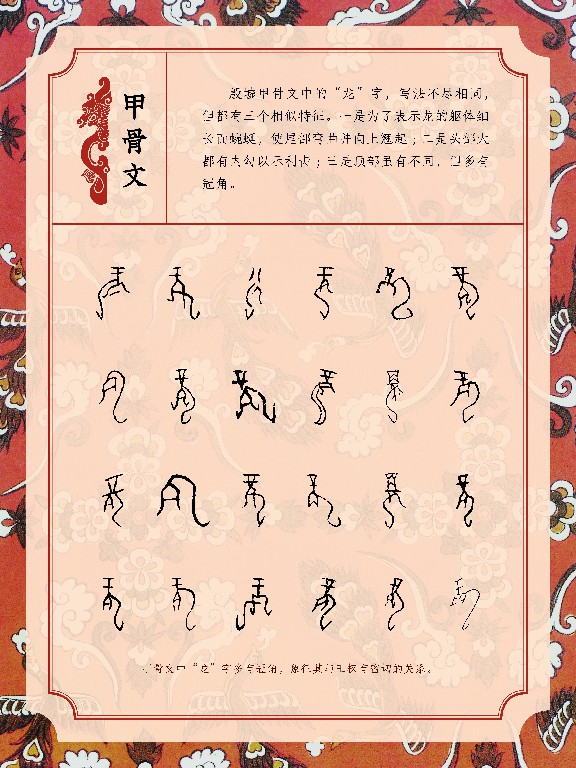 甲骨文
殷墟甲骨文中的“龙”字，写法不尽相同，
但都有三个相似特征。一是为了表示龙的躯体细
长而蜿蜒，使尾部弯曲并向上翘起；二是头部大
都有内勾以示利齿；三是顶部虽有不同，但多有
冠角。
骨文中“龙”字多有冠角，象征其与王权有密切的关系。